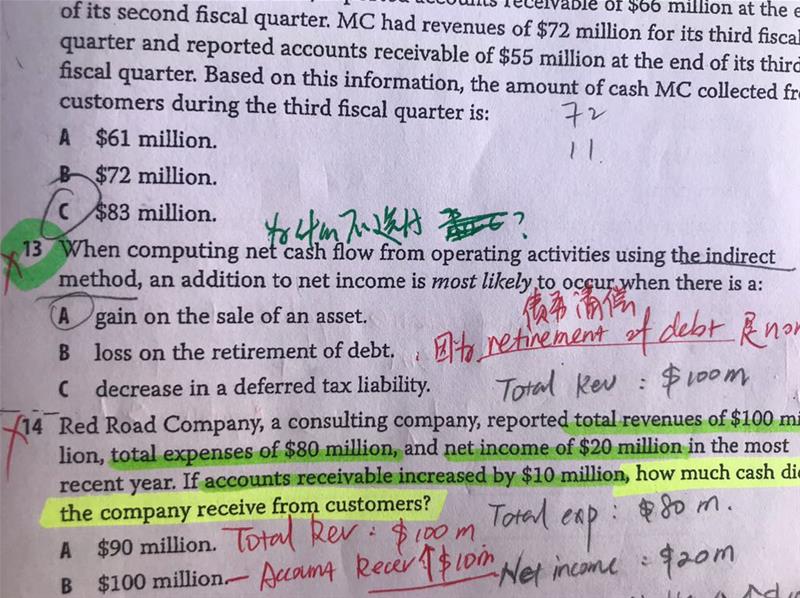 accounts receivable of $66 million at the e
of its second fiscal quarter. MC had revenues of $72 million for its third fiscal
quarter and reported accounts receivable of $55 million at the end of its third
fiscal quarter. Based on this information, the amount of cash MC collected fr
customers during the third fiscal quarter is:
72
11.
A $61 million.
B $72 million.
C $83 million.
为什么不选 ?
13 When computing net cash flow from operating activities using the indirect
method, an addition to net income is most likely to occur when there is a:
A gain on the sale of an asset.
债券清偿
B loss on the retirement of debt. 因为 retirement of debt 是 non
C decrease in a deferred tax liability. Total Rev : $100m
14 Red Road Company, a consulting company, reported total revenues of $100 mi
lion, total expenses of $80 million, and net income of $20 million in the most
recent year. If accounts receivable increased by $10 million, how much cash did
the company receive from customers? Total exp : $80 m.
A $90 million. Total Rev : $100 m
B $100 million. Account Recei ↑$10m Net income : $20m